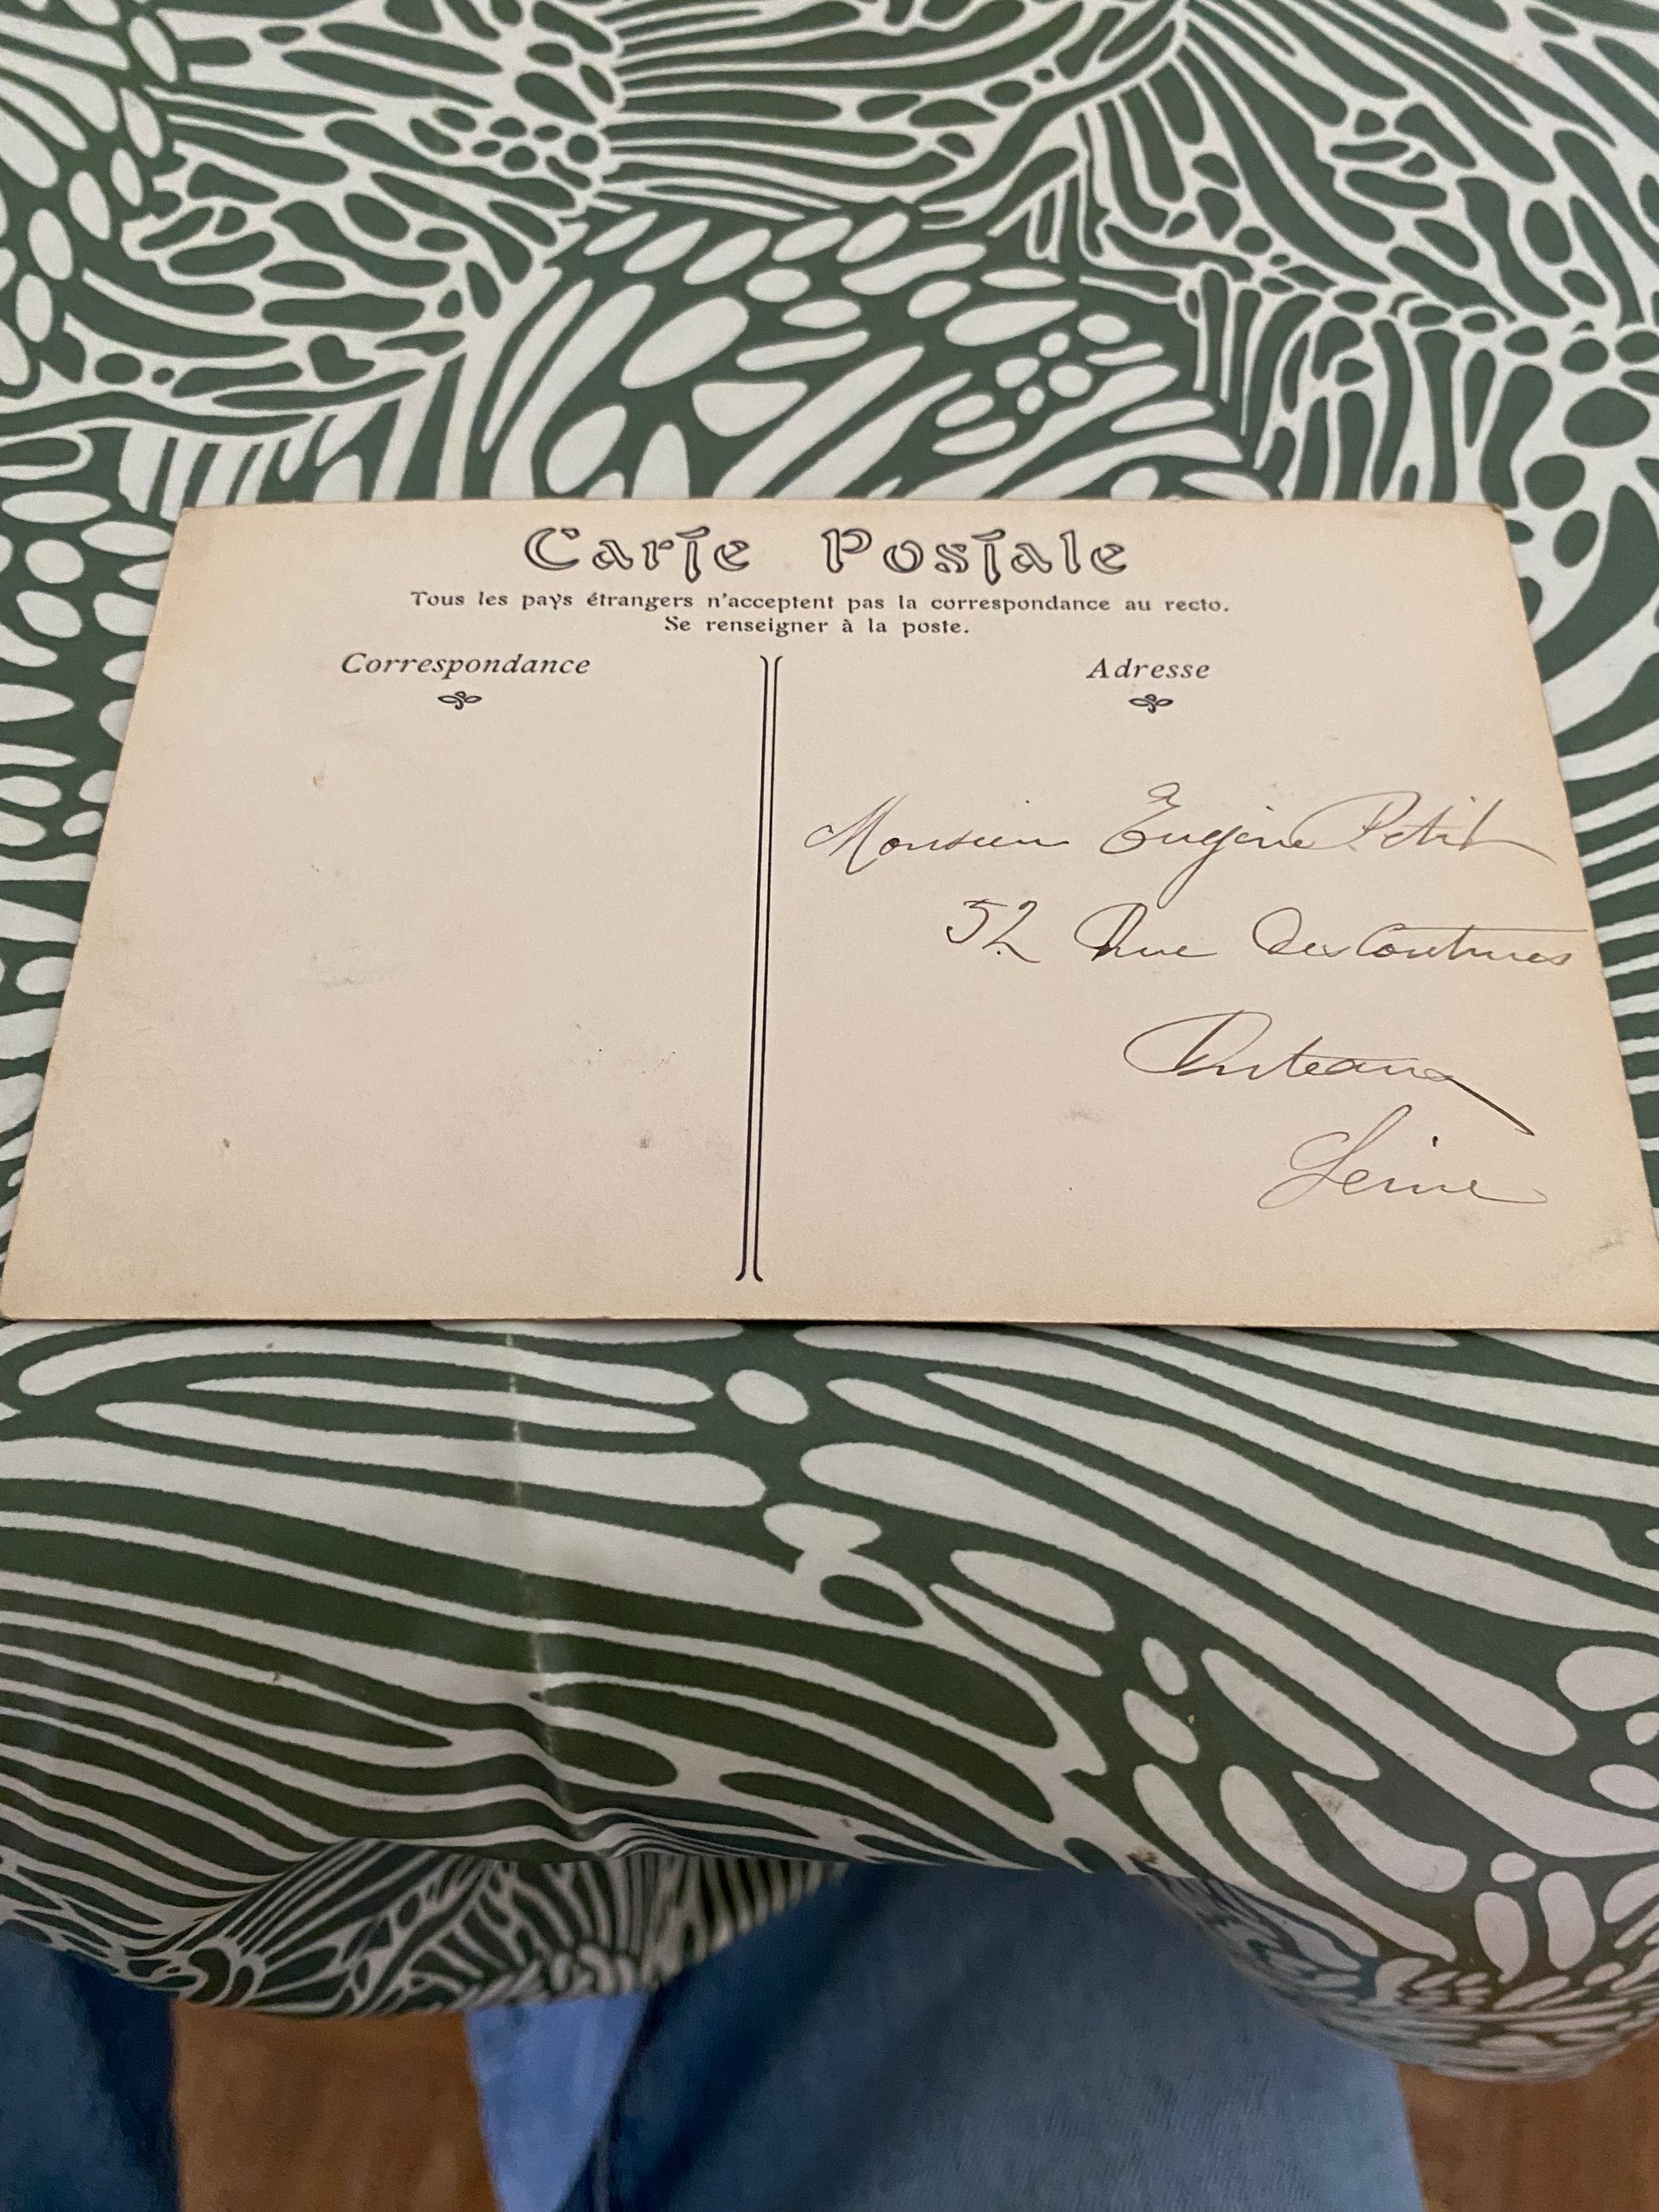 Carte Postale
Tous les pays étrangers n'acceptent pas la correspondance au recto.
Se renseigner à la poste.
Correspondance
Adresse
Monsieur Eugène Petit
52 Rue Des Coutures
Puteaux
Seine